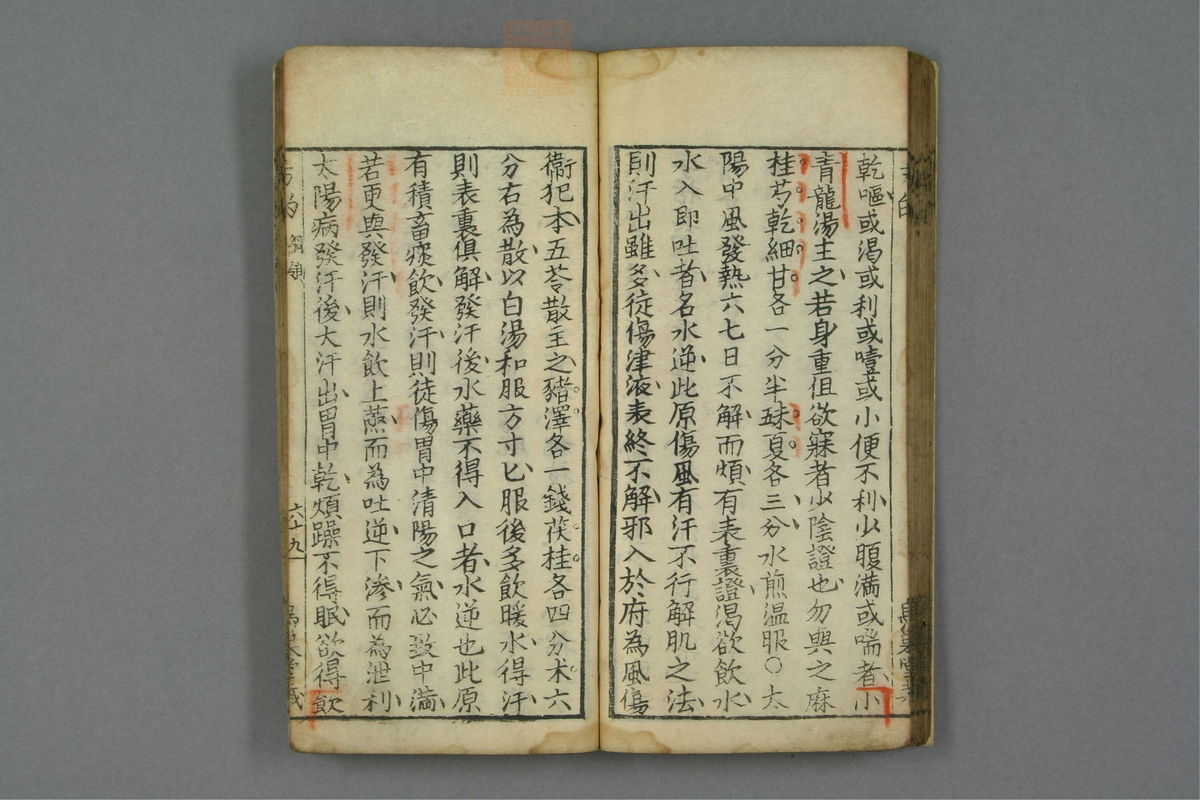 乾嘔或渴或利或噎或小便不利少腹滿或喘者小
青龍湯主之若身重但欲寐者少陰證也勿與之麻
桂芍乾細甘各一分半味夏各三分水煎温服〇太
陽中風發熱六七日不解而煩有表裏證渴欲飲水
水入即吐者名水逆此原傷風有汗不行解肌之法
則汗出雖多徒傷津液表終不解邪入於府為風傷
衞犯本五苓散主之豬澤各一錢茯桂各四分术六
分右為散以白湯和服方寸匕服後多飲暖水得汗
則表裏俱解發汗後水藥不得入口者水逆也此原
有積畜痰飲發汗則徒傷胃中清陽之氣必致中滿
若更與發汗則水飲上蒸而為吐逆下滲而為泄利
太陽病發汗後大汗出胃中乾煩躁不得眠欲得飲
六十九